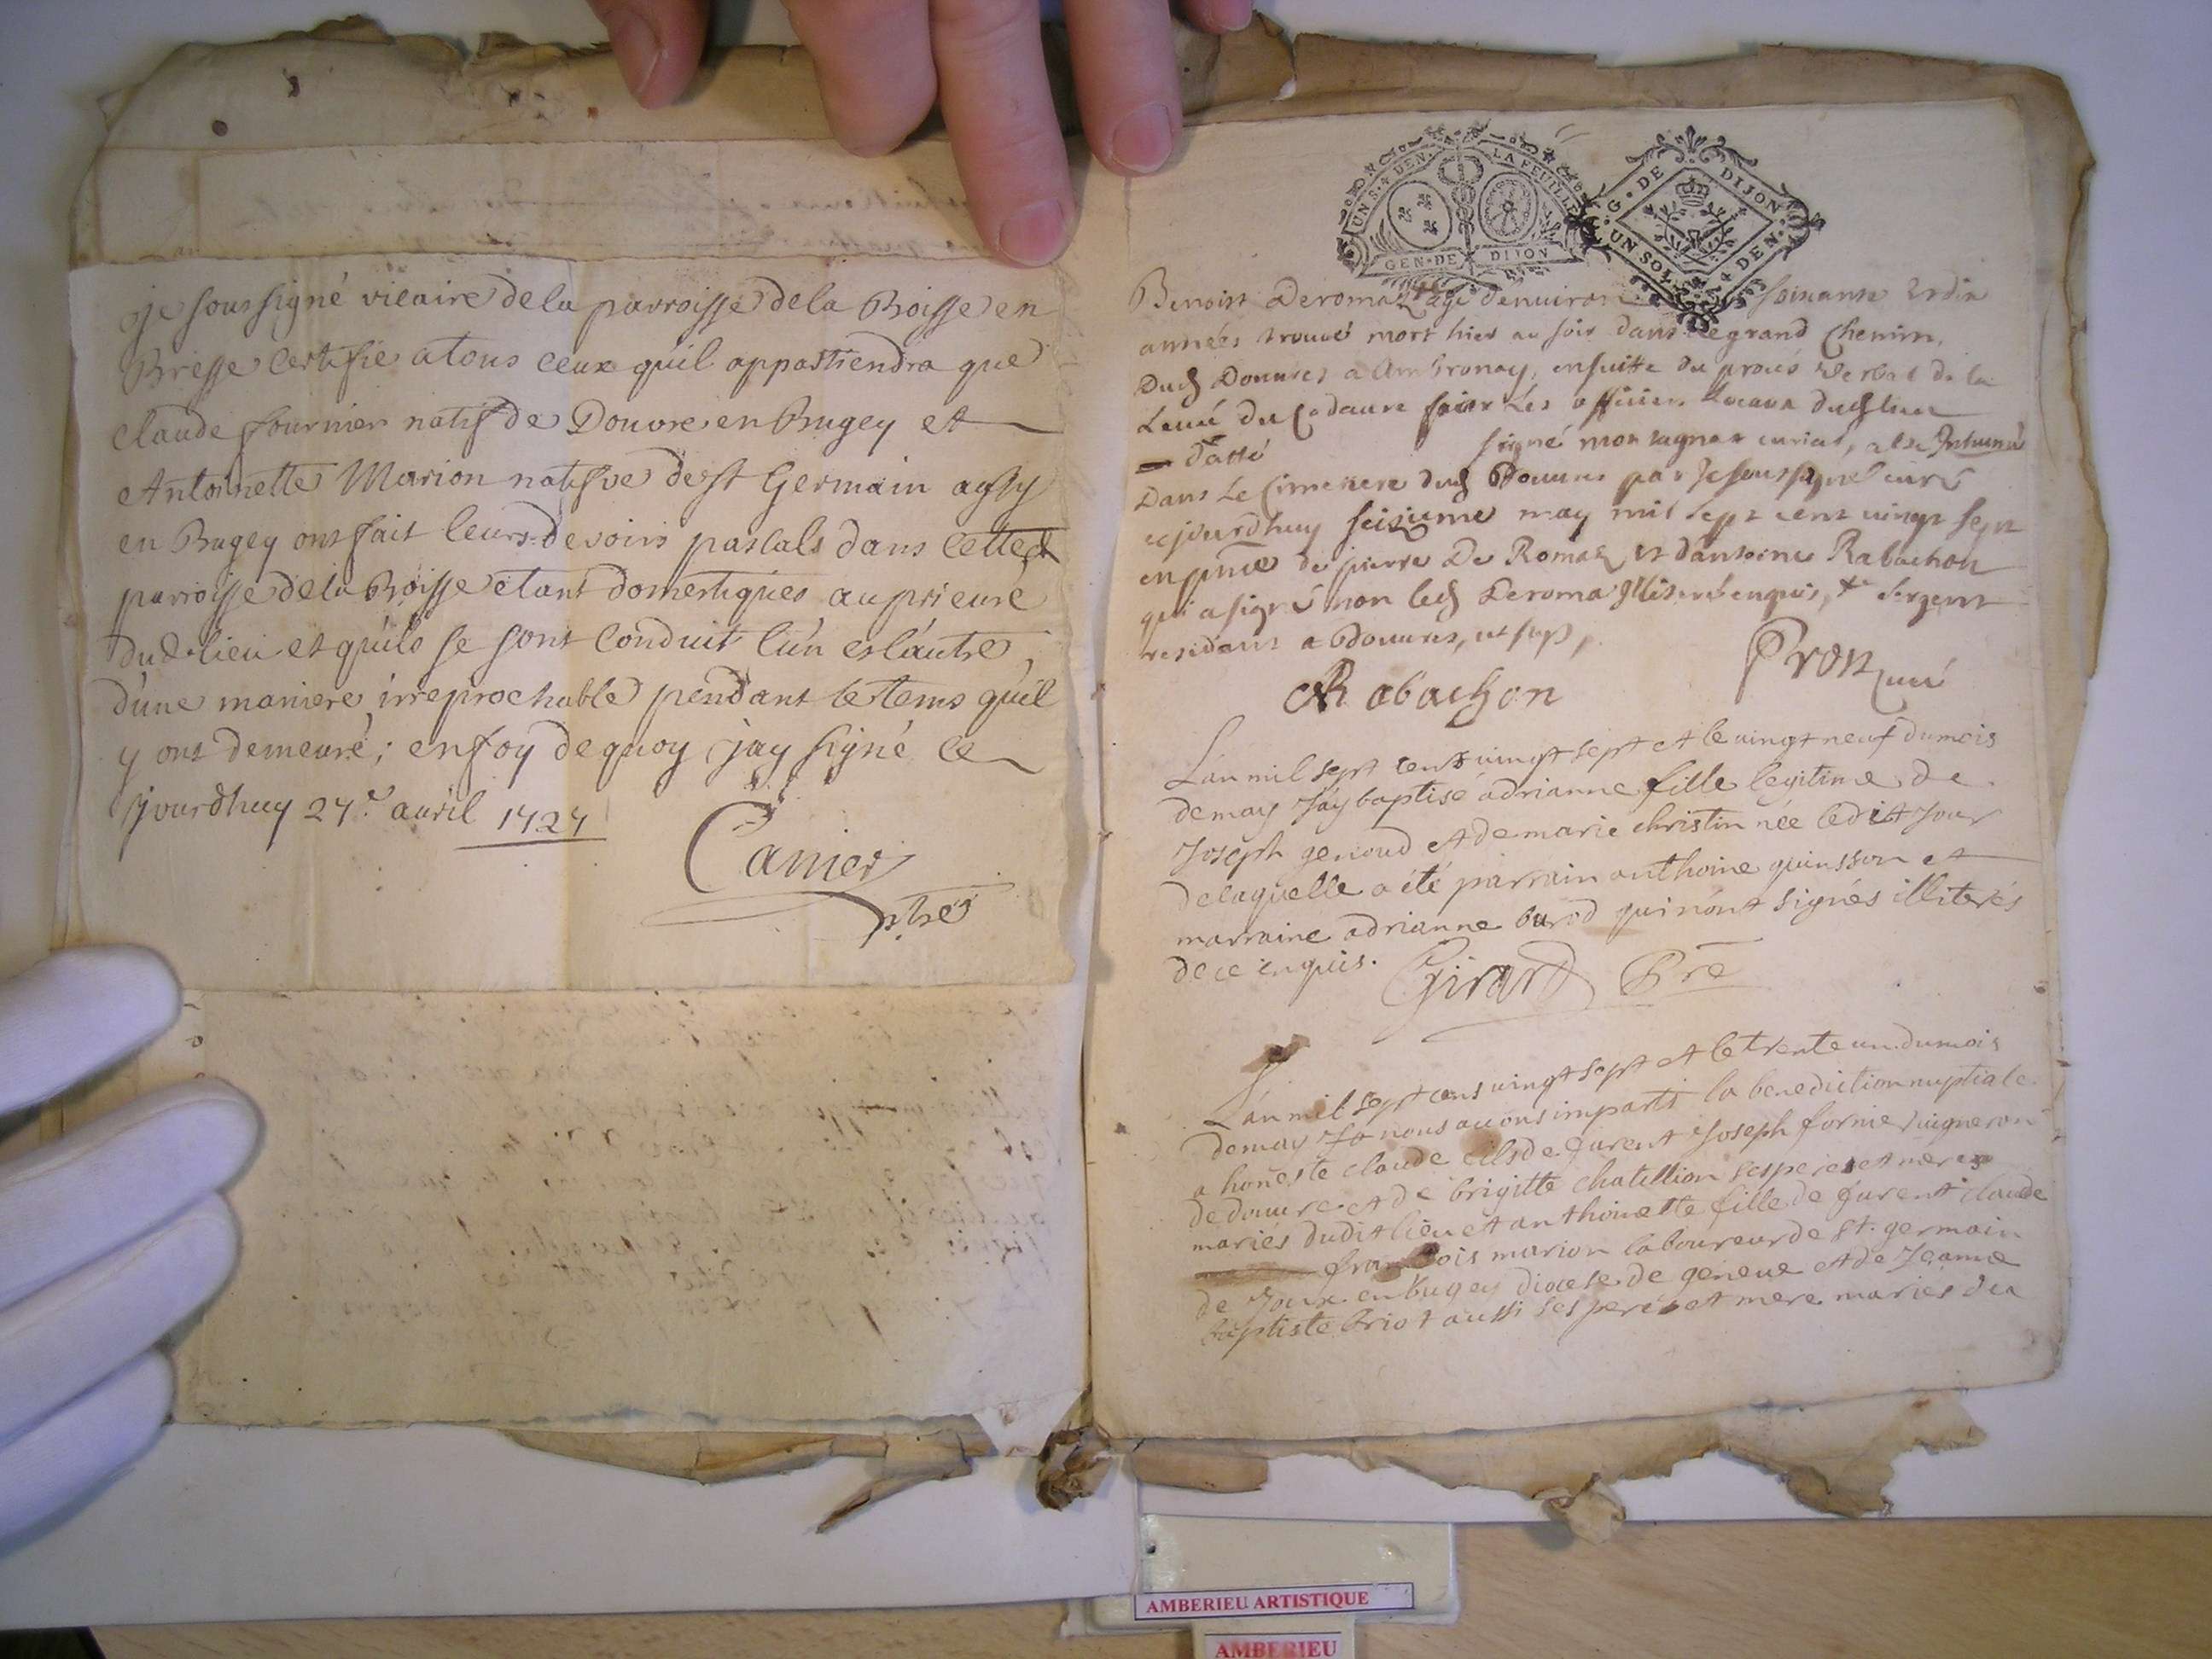 je soussigné vicaire de la parroisse de la Boisse en
Bresse certifie a tous ceux qu'il appartiendra que
claude fournier natif de Douvre en Bugey et
Antoinette Marion natifve de st Germain
en Bugey ont fait leurs devoirs pascals dans cette
parroisse de la Boisse etant domestiques au prieuré
dud. lieu et qu'ils se sont conduit l'un et l'autre,
d'une maniere irreprochable pendant le tems qu'il
y ont demeuré; en foy de quoy j'ay signé ce
jourdhuy 27e. avril 1727
Canier
ptre
UN S. 4 DEN. LA FEUILLE
GEN. DE DIJON
G. DE DIJON
UN SOL. 4 DEN.
Benoist Deromaz agé denuiron soixante et dix
années trouué mort hier au soir dans le grand chemin,
Dud Douures a Ambronay, ensuitte du procés verbal de la
Leuée du Cadaure par Les officiers Locaux dud lieu
datté signé montagnat curial, a été Inhumé
Dans Le Cimetiere dud Douures par Je soussigné curé
cejourdhuy seizieme may mil sept cent vingt sept
en pnce de pierre De Romaz et d'antoine Rabachon
qui a signé non led Deroma Illiteré enquis, sergent
residant a Douures, ut sup,
Rabachon
Pron curé
L'an mil sept cent vingt sept et le vingt neuf du mois
de may J'ay baptisé adrianne fille legitime de
Joseph genoud et de marie christin née ledit Jour
de laquelle a été parrain anthoine quinsson et
marraine adrianne qui n'ont signés illiterés
de ce enquis. Girard Pre
L'an mil sept cens vingt sept et le trente un du mois
de may nous auons imparti la benediction nuptiale
a honeste claude fils de Joseph fornie vigneron
de douure et de brigitte chatillion ses peres et meres
mariés dudit lieu et anthoinette fille de claude
francois marion laboureur de st. germain
de Joux en bugey diocese de geneue et de Jeanne
baptiste briot aussi ses peres et mere mariés du
AMBERIEU ARTISTIQUE
AMBERIEU